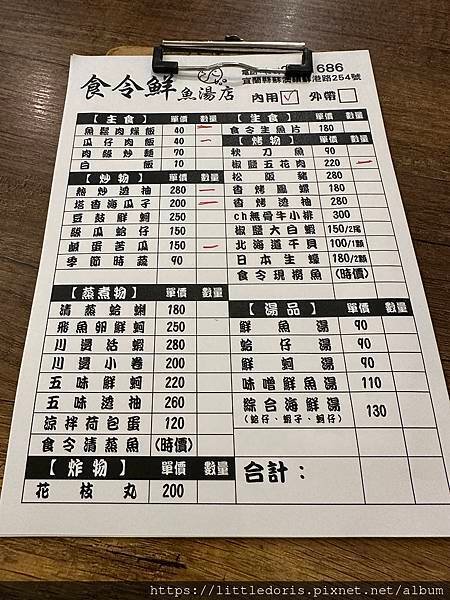 食令鮮 魚湯店
686
宜蘭縣蘇澳鎮漁港路254號
內用☑ 外帶☐
【主食】 單價 數量
魚鬆肉燥飯 40
瓜仔肉飯 40
肉絲炒麵 90
白飯 10
【炒物】 單價 數量
熱炒透抽 280
塔香海瓜子 200
豆鼓鮮蚵 250
絲瓜蛤仔 150
鹹蛋苦瓜 150
季節時蔬 90
【蒸煮物】 單價 數量
清蒸蛤蜊 180
飛魚卵鮮蚵 250
川燙活蝦 280
川燙小卷 200
五味鮮蚵 220
五味透抽 260
涼拌荷包蛋 120
食令清蒸魚 (時價)
【炸物】 單價 數量
花枝丸 200
【生食】 單價 數量
食令生魚片 180
【烤物】 單價 數量
秋刀魚 90
椒鹽五花肉 220
松阪豬 280
香烤鳳螺 180
香烤透抽 280
ch無骨牛小排 300
椒鹽大白蝦 150/2尾
北海道干貝 100/1顆
日本生蠔 180/2顆
食令現撈魚 (時價)
【湯品】 單價 數量
鮮魚湯 90
蛤仔湯 90
鮮蚵湯 90
味噌鮮魚湯 110
綜合海鮮湯 130
(蛤仔、蝦子、蚵仔)
合計：
https://littledoris.pixnet.net/album